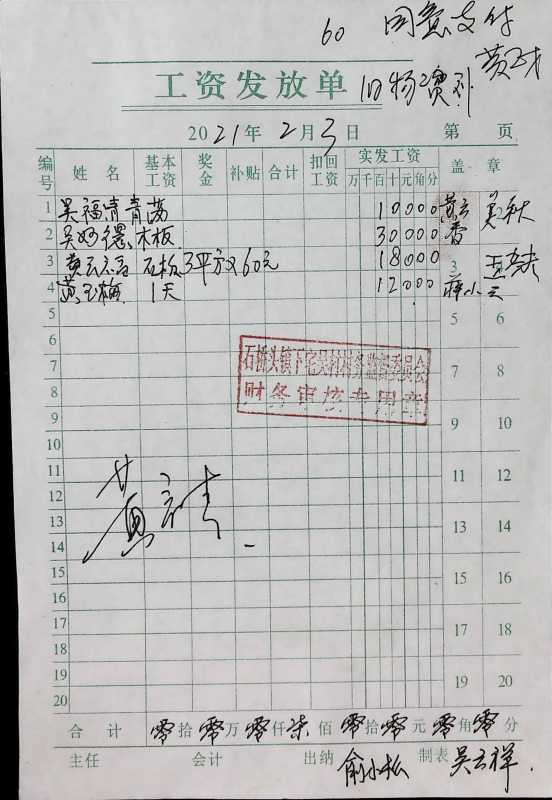 60 同意支付
工资发放单
2021年2月3日 第 页
编号 姓名 基本工资 奖金 补贴 合计 扣回工资 实发工资 盖章
万千百十元角分
1 吴福清 10000
2 木板 30000
3 石板3平方×60元 18000 3
4 黄玉梅 1天 12000 蒋小云
5 5 6
6
7 7 8
8
石桥头镇下宅吴村村务监督委员会
财务审核专用章
9 9 10
10
11 11 12
12
13 13 14
14
15 15 16
16
17 17 18
18
19 19 20
20
合计 零拾零万零仟柒佰零拾零元零角零分
主任 会计 出纳 俞小松 制表 吴云祥